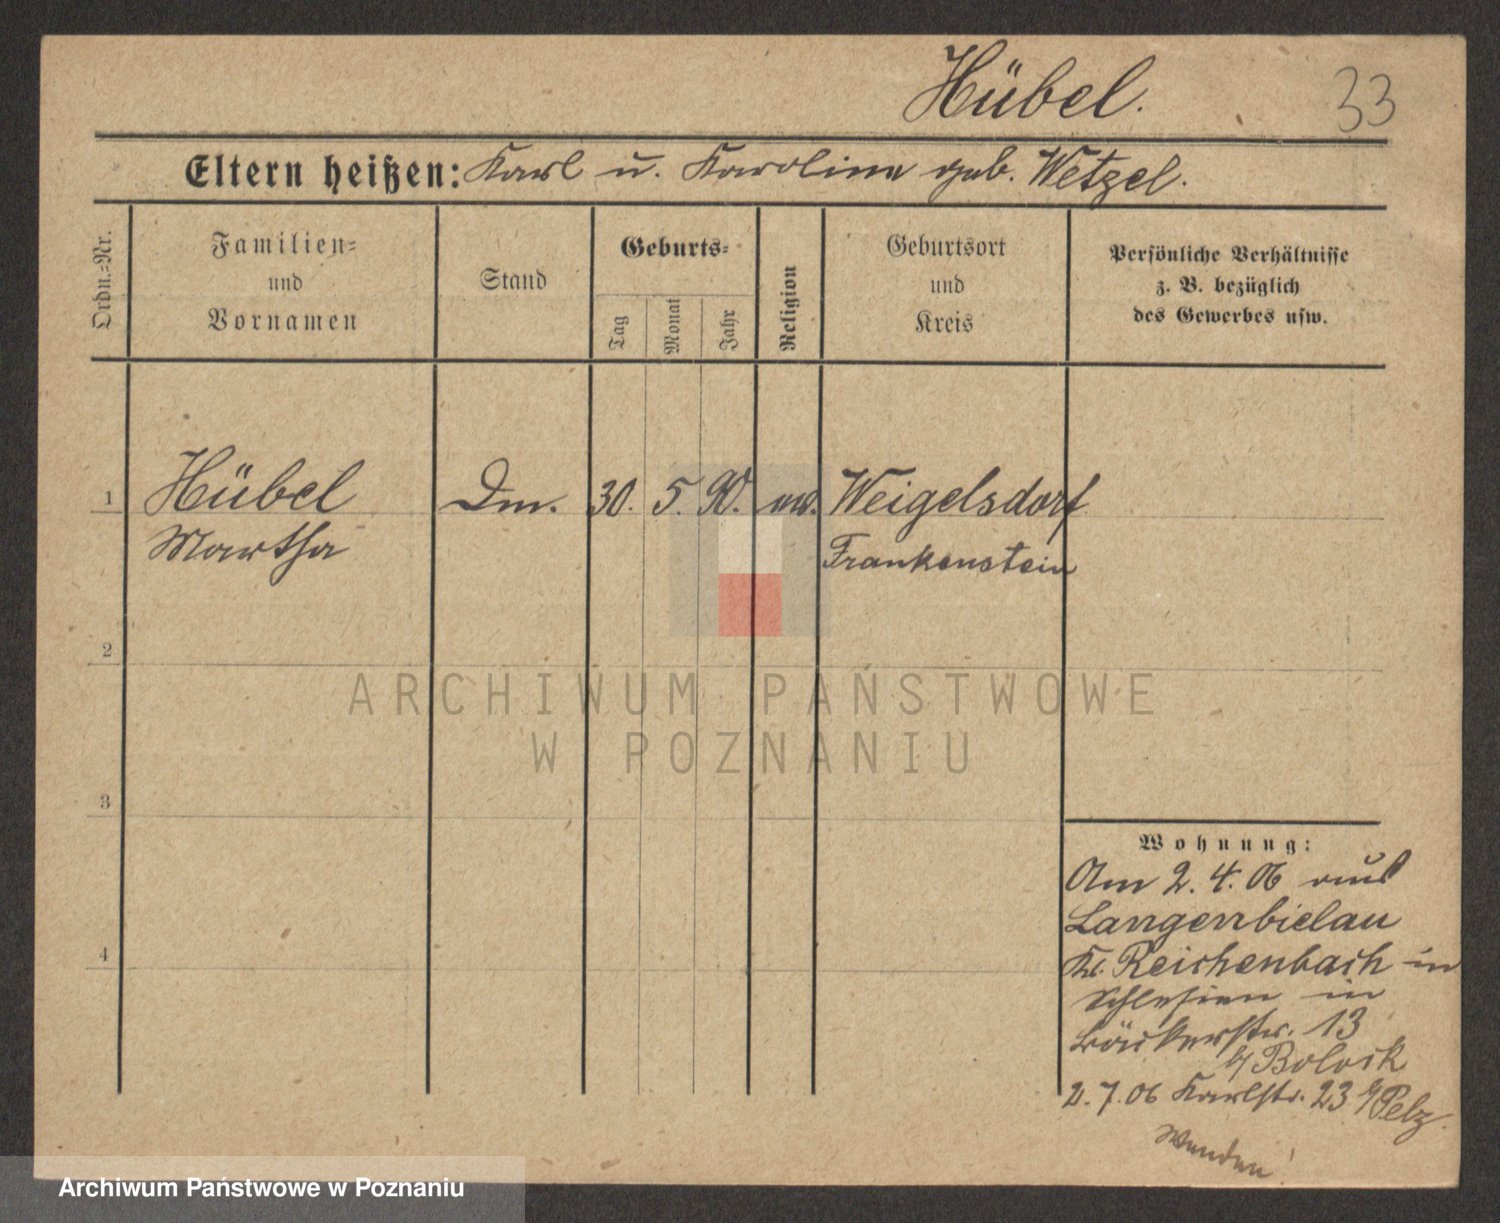 Hübel.
33
Eltern heißen: Karl u. Karolina geb. Wetzel.
Ordn.=Nr.
Familien=
und
Vornamen
Stand
Geburts=
Tag
Monat
Jahr
Religion
Geburtsort
und
Kreis
Persönliche Verhältnisse
z. B. bezüglich
des Gewerbes usw.
1
Hübel
Martha
30. 5. 90.
Weigelsdorf
Frankenstein
2
3
4
Wohnung:
Am 2. 4. 06 aus
Langenbielau
Kr. Reichenbach in
Schlesien in
Bäckerstr. 13
b/ Bolock
2. 7. 06 Karlstr. 23 b/ Pelz.
Wenden!
ARCHIWUM PAŃSTWOWE
W POZNANIU
Archiwum Państwowe w Poznaniu